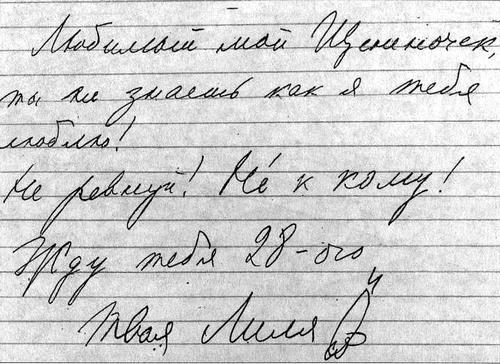 Любимый мой Щениночек,
ты не знаешь как я тебя
люблю!
Не ревнуй! Не́ к кому!
Жду тебя 28-ого
твоя Лиля